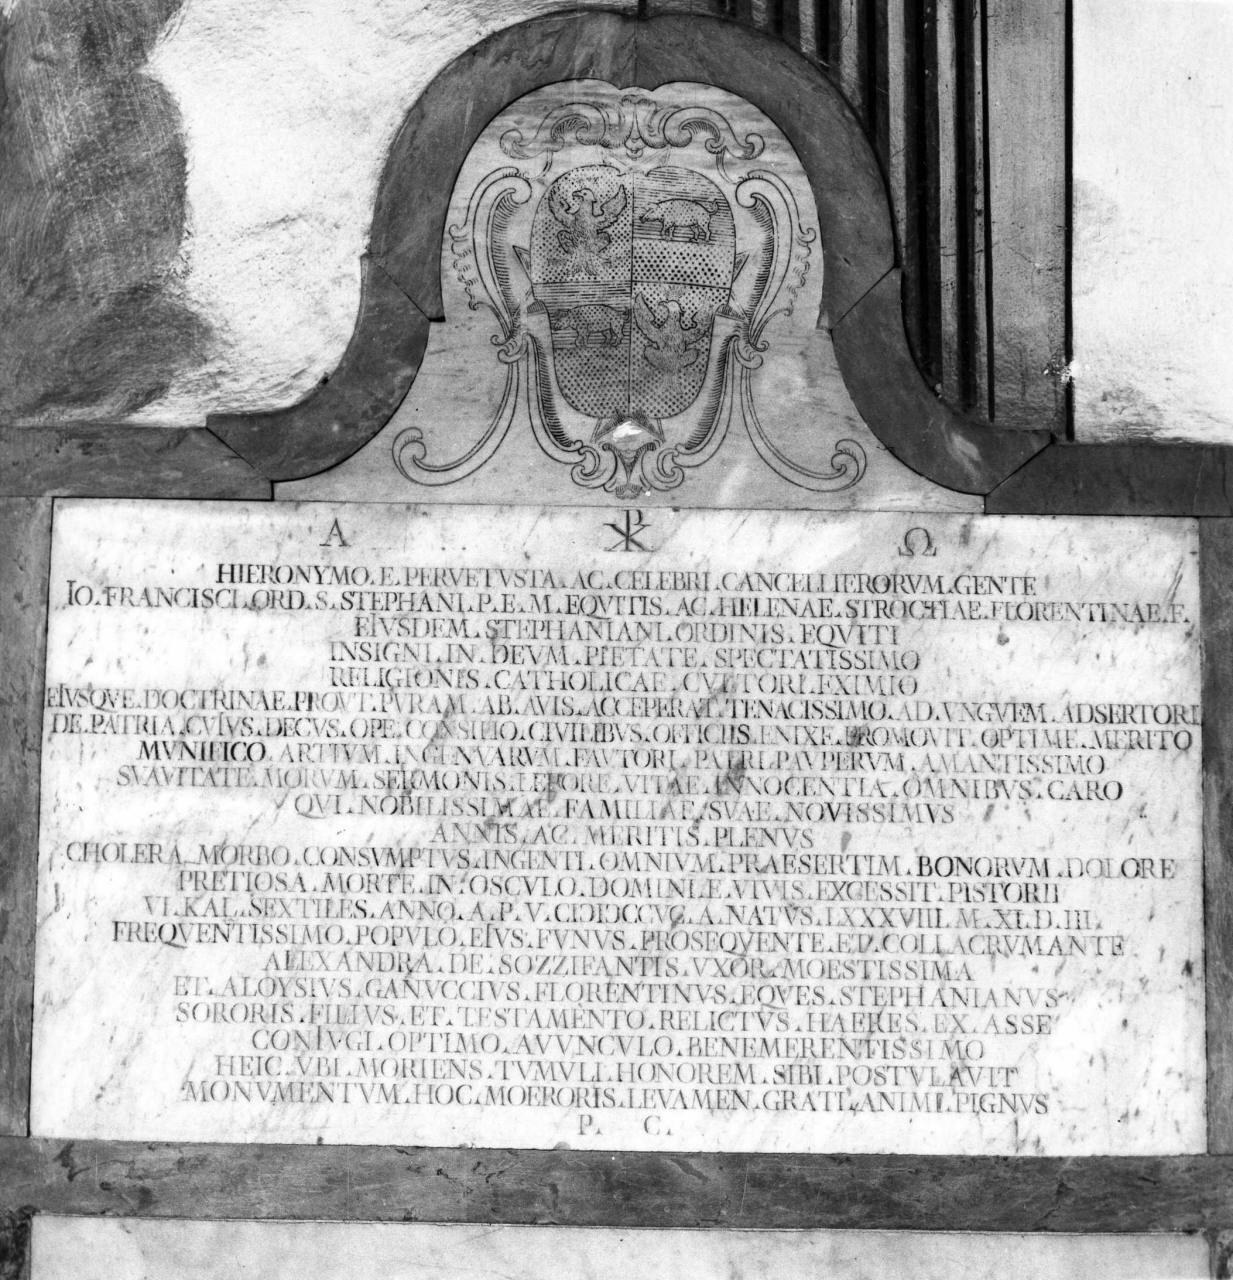 A ☧ Ω
HIERONYMO.E.PERVETVSTA.AC.CELEBRI.CANCELLIERORVM.GENTE
IO.FRANCISCI.ORD.S.STEPHANI.P.E.M.EQVITIS.AC.HELENAE.STROCHIAE.FLORENTINAE.F.
EIVSDEM.STEPHANIANI.ORDINIS.EQVITI
INSIGNI.IN.DEVM.PIETATE.SPECTATISSIMO
RELIGIONIS.CATHOLICAE.CVLTORI.EXIMIO
EIVSQVE.DOCTRINAE.PROVT.PVRAM.AB.AVIS.ACCEPERAT.TENACISSIMO.AD.VNGVEM.ADSERTORI
DE.PATRIA.CVIVS.DECVS.OPE.CONSILIO.CIVILIBVS.OFFICIIS.ENIXE.PROMOVIT.OPTIME.MERITO
MVNIFICO.ARTIVM.INGENVARVM.FAVTORI.PATRI.PAVPERVM.AMANTISSIMO
SVAVITATE.MORVM.SERMONIS.LEPORE.VITAE.INNOCENTIA.OMNIBVS.CARO
QVI.NOBILISSIMAE.FAMILIAE.SVAE.NOVISSIMVS
ANNIS.AC.MERITIS.PLENVS
CHOLERA.MORBO.CONSVMPTVS.INGENTI.OMNIVM.PRAESERTIM.BONORVM.DOLORE
PRETIOSA.MORTE.IN.OSCVLO.DOMINI.E.VIVIS.EXCESSIT.PISTORII
VI.KAL.SEXTILES.ANNO.A.P.V.CIƆIƆCCCV.A.NATVS.LXXVIII.M.XI.D.III
FREQVENTISSIMO.POPVLO.EIVS.FVNVS.PROSEQVENTE.ED.COLLACRVMANTE
ALEXANDRA.DE.SOZZIFANTIS.VXOR.MOESTISSIMA
ET.ALOYSIVS.GANVCCIVS.FLORENTINVS.EQVES.STEPHANIANVS
SORORIS.FILIVS.ET.TESTAMENTO.RELICTVS.HAERES.EX.ASSE
CONIVGI.OPTIMO.AVVNCVLO.BENEMERENTISSIMO
HEIC.VBI.MORIENS.TVMVLI.HONOREM.SIBI.POSTVLAVIT
MONVMENTVM.HOC.MOERORIS.LEVAMEN.GRATI.ANIMI.PIGNVS
P. C.